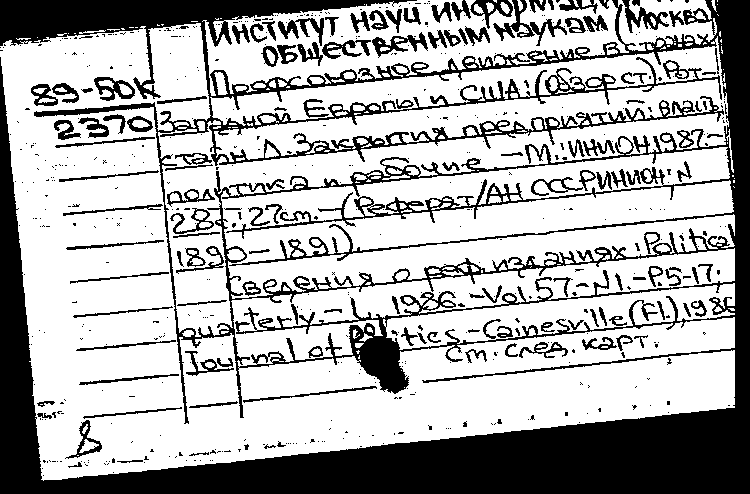 Институт науч. информации по
общественным наукам (Москва)
89-50К
2370
Профсоюзное движение в странах
Западной Европы и США: (Обзор ст.). Рот-
стайн Л. Закрытия предприятий: власть,
политика и рабочие. -М.: ИНИОН, 1987.-
28с.; 27см. - (Реферат/АН СССР, ИНИОН; N
1890-1891).
Сведения о реф. изданиях: Political
quarterly. - L., 1986. -Vol. 57. -N1. -P.5-17;
Journal of politics. -Gainesville (Fl.), 1986
См. след. карт.
8